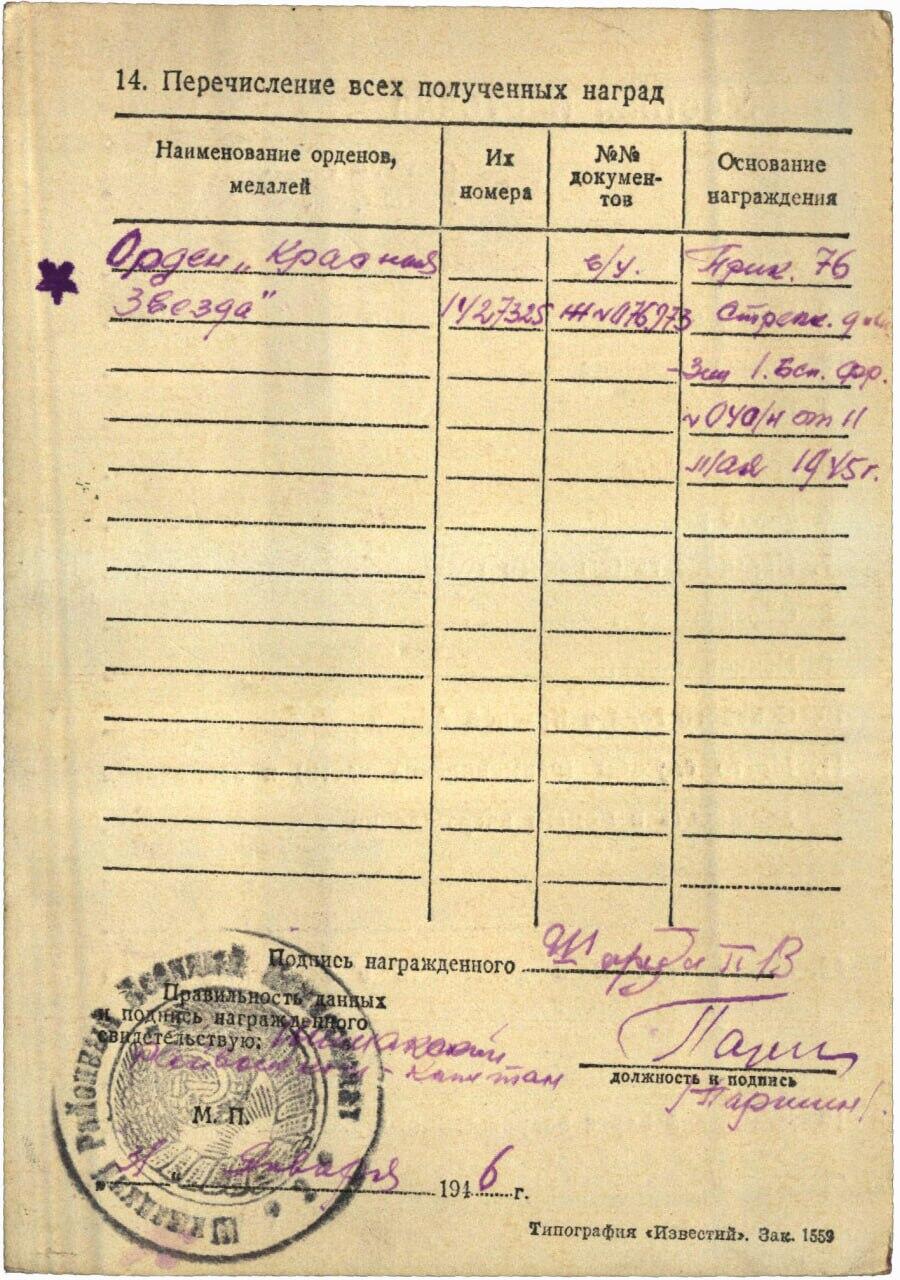 14. Перечисление всех полученных наград
Наименование орденов, медалей
Их номера
№№ докумен-тов
Основание награждения
Орден „Красная в/у. Прик. 76
Звезда" 1427325 Ж№076973 Стрелк. див
1. Бел. фр.
№040/н от 11
мая 1945г.
Подпись награжденного
П В
Правильность данных
и подпись награжденного
свидетельствую:
Райвоенком - капитан
должность и подпись
/Паршин/.
М. П.
"31" Января 1946 г.
Районный Военный Комиссариат
Типография «Известий». Зак. 1559